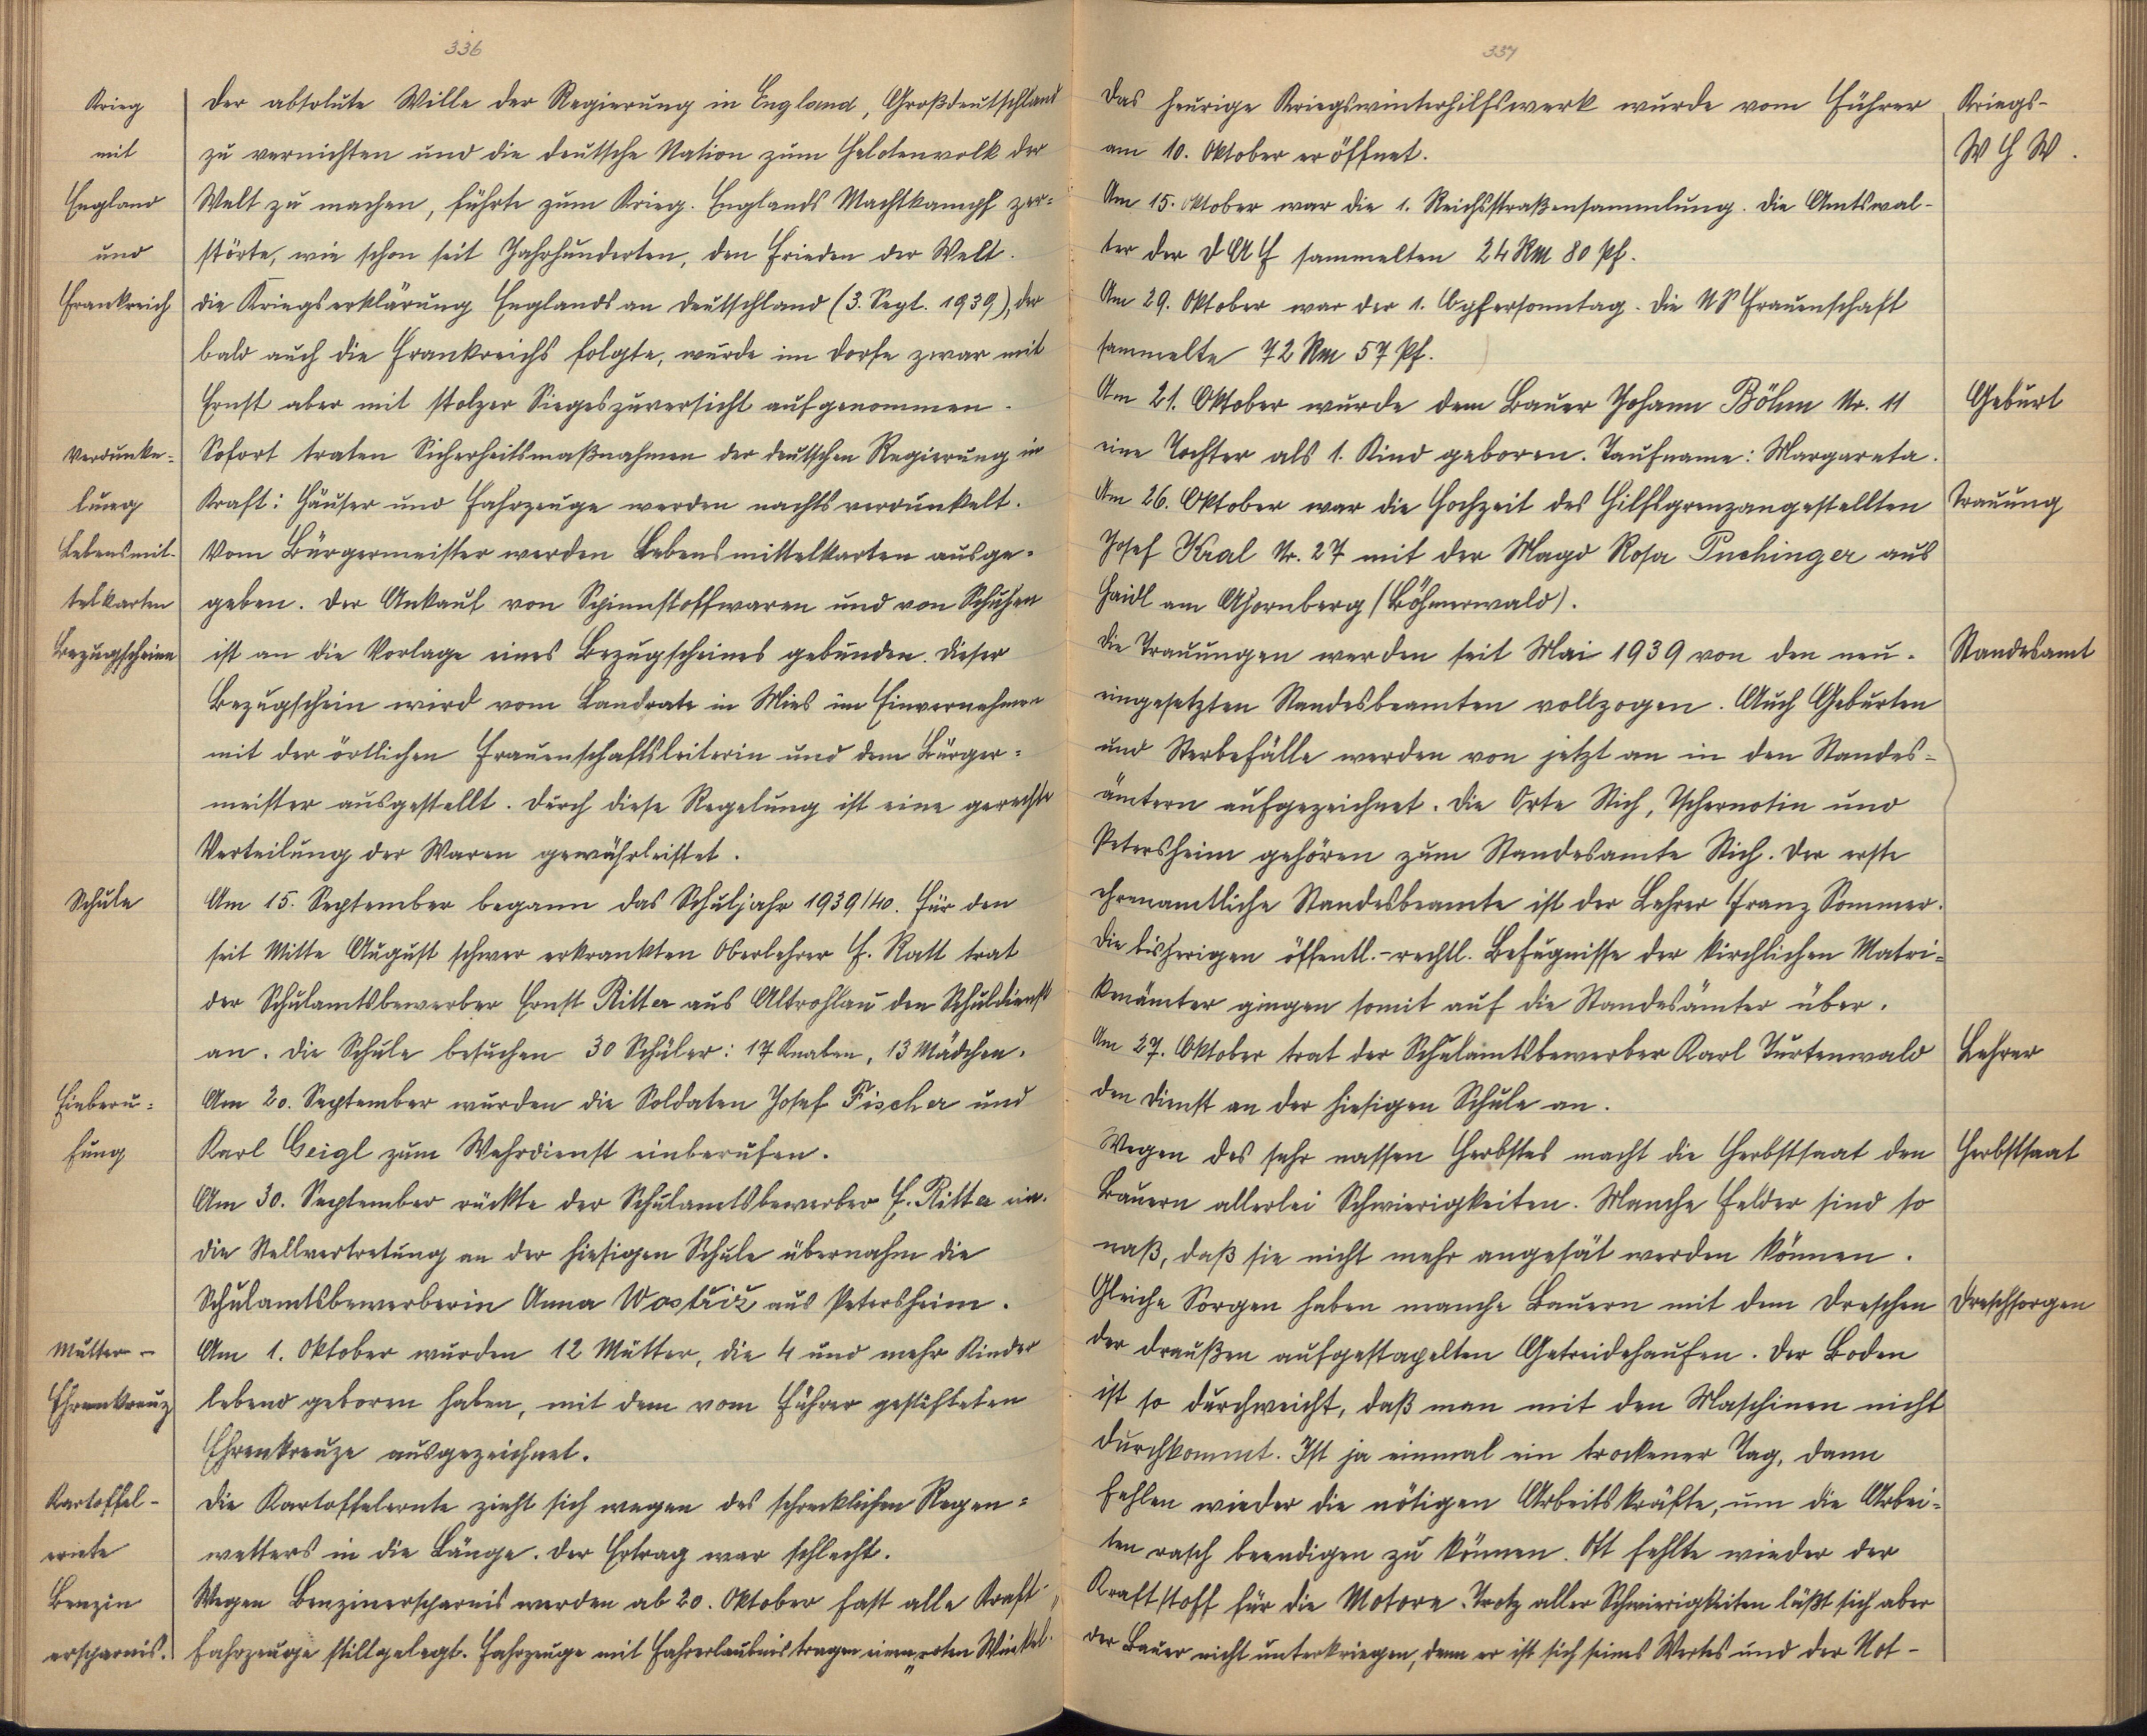 336
Krieg
mit
England
und
Frankreich
Der absolute Wille der Regierung in England, Großdeutschland
zu vernichten und die deutsche Nation zum Helotenvolk der
Welt zu machen, führte zum Krieg. Englands Machtkampf zer=
störte, wie schon seit Jahrhunderten, den Frieden der Welt.
Die Kriegserklärung Englands an Deutschland (3. Sept. 1939), der
bald auch die Frankreichs folgte, wurde im Dorfe zwar mit
Ernst aber mit stolzer Siegeszuversicht aufgenommen.
Verdunke=
lung
Sofort traten Sicherheitsmaßnahmen der deutschen Regierung in
Kraft: Häuser und Fahrzeuge werden nachts verdunkelt.
Lebensmit-
telkarten
Bezugscheine
Vom Bürgermeister werden Lebensmittelkarten ausge=
geben. Der Ankauf von Spinnstoffwaren und von Schuhen
ist an die Vorlage eines Bezugscheines gebunden. Dieser
Bezugschein wird vom Landrate in Mies im Einvernehmen
mit der örtlichen Frauenschaftsleiterin und dem Bürger=
meister ausgestellt. Durch diese Regelung ist eine gerechte
Verteilung der Waren gewährleistet.
Schule
Am 15. September begann das Schuljahr 1939/40. Für den
seit Mitte August schwer erkrankten Oberlehrer F. Ratt trat
der Schulamtsbewerber Ernst Ritter aus Altrohlau den Schuldienst
an. Die Schule besuchen 30 Schüler: 17 Knaben, 13 Mädchen.
Einberu=
fung
Am 20. September wurden die Soldaten Josef Fischer und
Karl Geigl zum Wehrdienst einberufen.
Am 30. September rückte der Schulamtsbewerber E. Ritter ein.
Die Stellvertretung an der hiesigen Schule übernahm die
Schulamtsbewerberin Anna aus Petersheim.
Mutter-
Ehrenkreuz
Am 1. Oktober wurden 12 Mütter, die 4 und mehr Kinder
lebend geboren haben, mit dem vom Führer gestifteten
Ehrenkreuze ausgezeichnet.
Kartoffel-
ernte
Die Kartoffelernte zieht sich wegen des schrecklichen Regen=
wetters in die Länge. Der Ertrag war schlecht.
Benzin
ersparnis.
Wegen Benzinersparnis werden ab 20. Oktober fast alle Kraft-
fahrzeuge stillgelegt. Fahrzeuge mit Fahrerlaubnis tragen einen „roten Winkel."
337
Das heurige Kriegswinterhilfswerk wurde vom Führer
am 10. Oktober eröffnet.
Kriegs-
W H W.
Am 15. Oktober war die 1. Reichsstraßensammlung. Die Amtswal-
ter der D A F sammelten 24 Rm 80 Pf.
Am 29. Oktober war der 1. Opfersonntag. Die NS Frauenschaft
sammelte 72 Rm 57 Pf.
Am 21. Oktober wurde dem Bauer Johann Böhm Nr. 11
eine Tochter als 1. Kind geboren. Taufname: Margareta.
Geburt
Am 26. Oktober war die Hochzeit des Hilfsgrenzangestellten
Josef Kral Nr. 27 mit der Magd Rosa Puchinger aus
Haidl am Ahornberg (Böhmerwald).
Trauung
Die Trauungen werden seit Mai 1939 von den neu-
eingesetzten Standesbeamten vollzogen. Auch Geburten
und Sterbefälle werden von jetzt an in den Standes-
ämtern aufgezeichnet. Die Orte Stich, Tschernotin und
Petersheim gehören zum Standesamte Stich. Der erste
ehrenamtliche Standesbeamte ist der Lehrer Franz Sommer.
Die bisherigen öffentl.-rechtl. Befugnisse der kirchlichen Matri-
kenämter gingen somit auf die Standesämter über.
Standesamt
Am 27. Oktober trat der Schulamtsbewerber Karl Turtenwald
den Dienst an der hiesigen Schule an.
Lehrer
Wegen des sehr nassen Herbstes macht die Herbstsaat den
Bauern allerlei Schwierigkeiten. Manche Felder sind so
naß, daß sie nicht mehr angesät werden können.
Herbstsaat
Gleiche Sorgen haben manche Bauern mit dem Dreschen
der draußen aufgestapelten Getreidehaufen. Der Boden
ist so durchweicht, daß man mit den Maschinen nicht
durchkommt. Ist ja einmal ein trockener Tag, dann
fehlen wieder die nötigen Arbeitskräfte, um die Arbei-
ten rasch beendigen zu können. Oft fehlte wieder der
Kraftstoff für die Motore. Trotz aller Schwierigkeiten läßt sich aber
der Bauer nicht unterkriegen, denn er ist sich seines Wertes und der Not-
Dreschsorgen